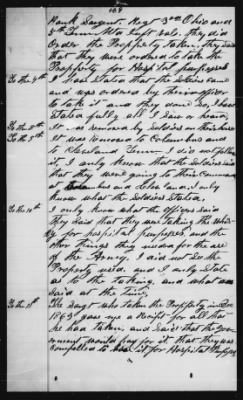 Hank Sargent. Reg 3rd Ohio and
5th Tenn Cavalry. they did
order the Property taken, they said
that they were ordered to take the
Property for Hospital purposes
To the 4th I have stated that the soldiers came
and was ordered by their officer
to take it and they done so, I have
stated fully all I saw or heard,
To the 5th It was removed by soldiers on their horses
To the 7th it was removed to Columbus and
to Cleveland Tenn I did not follow
it, I only know that the soldiers said
that they were going to their command
at and Cleveland; I only
know what the soldiers stated,
To the 10th I only know what the officers said
they said that they were taking the whis
ky for hospital purposes and the
other things they used for the use
of the Army. I did not see the
Property used, and I only state
as to the taking, and what was
said at the time,
To the 11th The Sergt who taken the Property in Dec
1863 gave me a Receipt for all that
he had taken, and said that the gov
ernment would pay for it that they was
compelled to have it for Hospital Purposes